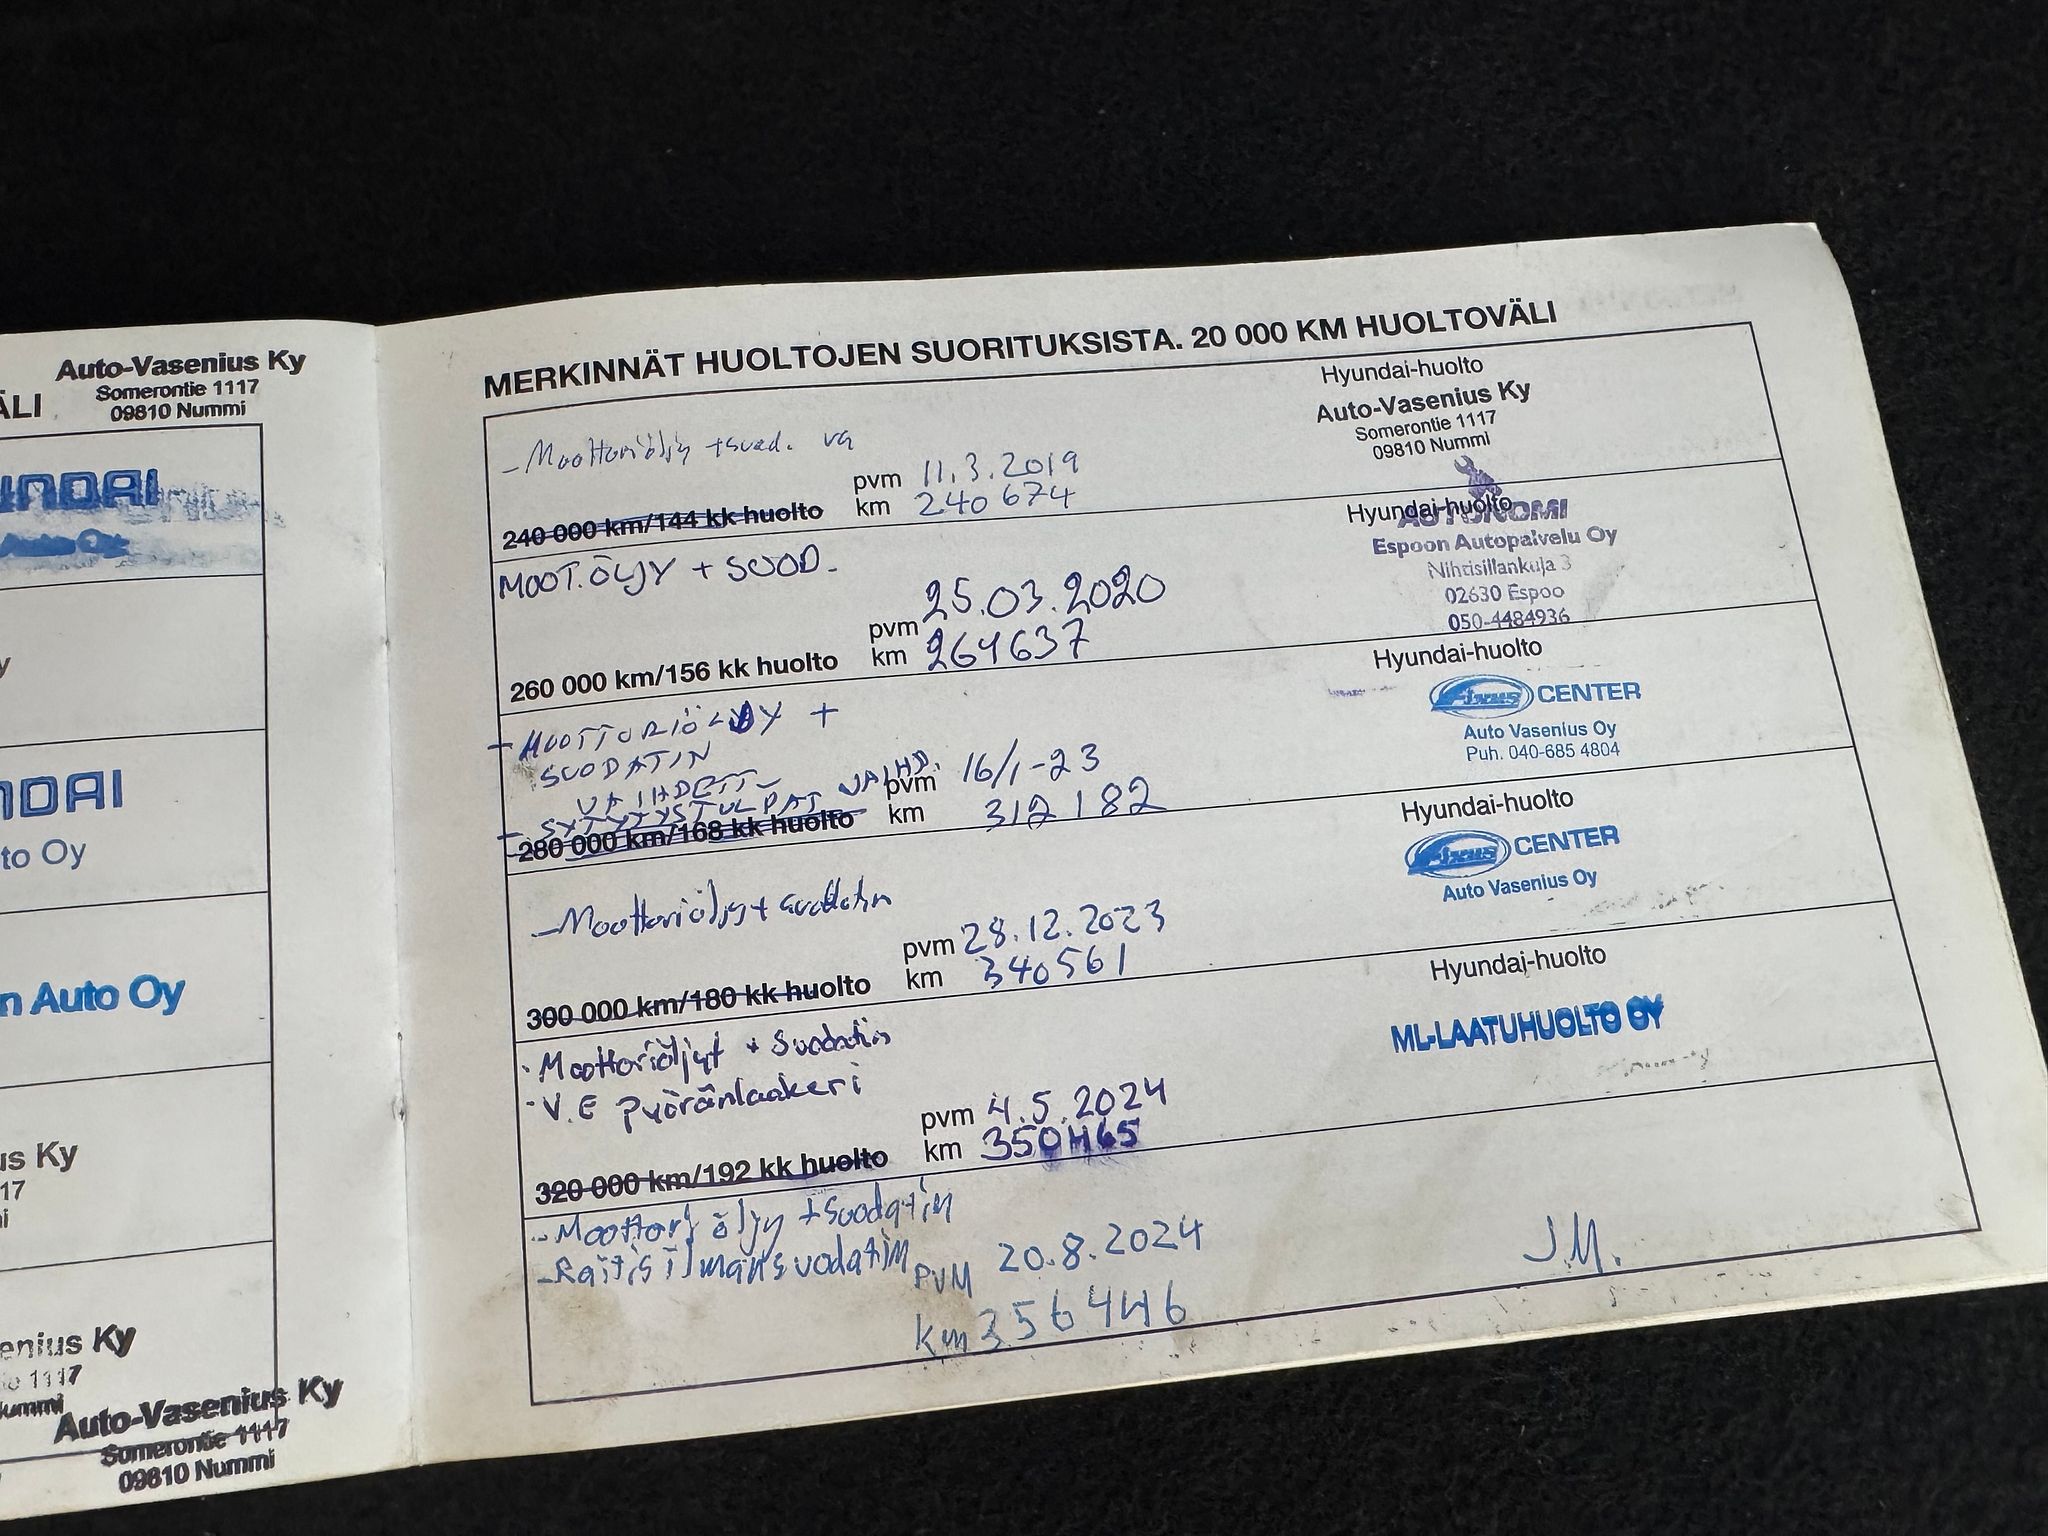 Auto-Vasenius Ky
Somerontie 1117
09810 Nummi
ÄLI
UNDAI
Auto Oy
y
NDAI
to Oy
n Auto Oy
us Ky
17
i
enius Ky
1117
ummi
Auto-Vasenius Ky
Somerontie 1117
09810 Nummi
MERKINNÄT HUOLTOJEN SUORITUKSISTA. 20 000 KM HUOLTOVÄLI
- Moottoriöljy + suod.
pvm 11.3.2019
240 000 km/144 kk huolto km 240 674
Hyundai-huolto
Auto-Vasenius Ky
Somerontie 1117
09810 Nummi
MOOT.ÖLJY + SUOD.
pvm 25.03.2020
260 000 km/156 kk huolto km 264637
Hyundai-huolto
AUTONOMI
Espoon Autopalvelu Oy
Nihtisillankuja 3
02630 Espoo
050-4484936
- MOOTTORIÖLJY +
SUODATIN
VAIHDETTU
- SYTYTYSTULPAT VAIHD.
pvm 16/1-23
280 000 km/168 kk huolto km 312 182
Hyundai-huolto
Fixus CENTER
Auto Vasenius Oy
Puh. 040-685 4804
- Moottoriöljy + suodatin
pvm 28.12.2023
300 000 km/180 kk huolto km 340561
Hyundai-huolto
Fixus CENTER
Auto Vasenius Oy
· Moottoriöljyt + Suodatin
· V.E pyöränlaakeri
pvm 4.5.2024
320 000 km/192 kk huolto km 350465
Hyundai-huolto
ML-LAATUHUOLTO OY
- Moottori öljy + Suodatin
- Raitis ilmansuodatin
PVM 20.8.2024
km 356446
J.M.